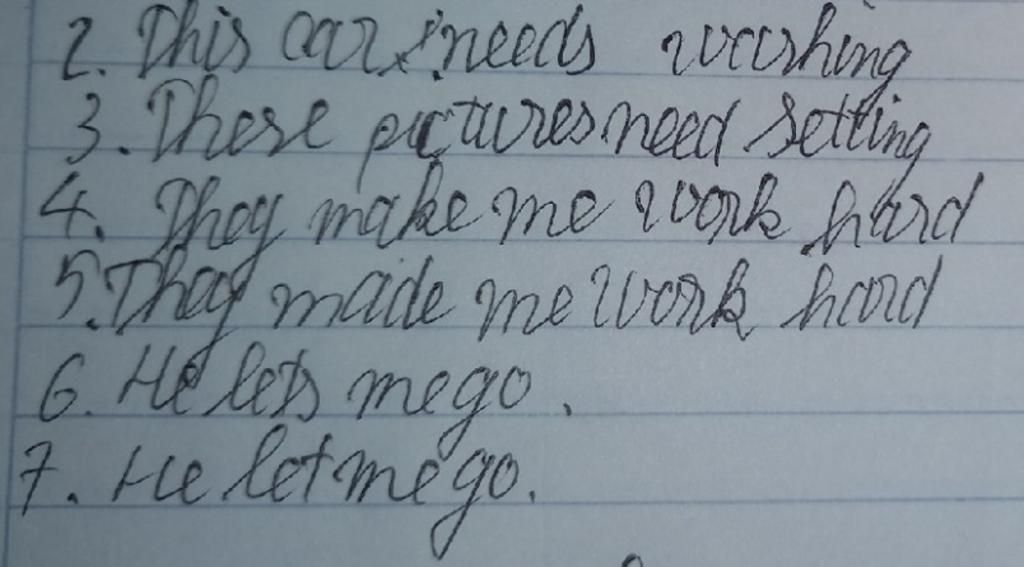 2. This car needs washing
3. These pictures need setting
4. They make me work hard
5. They made me work hard
6. He lets me go.
7. He let me go.